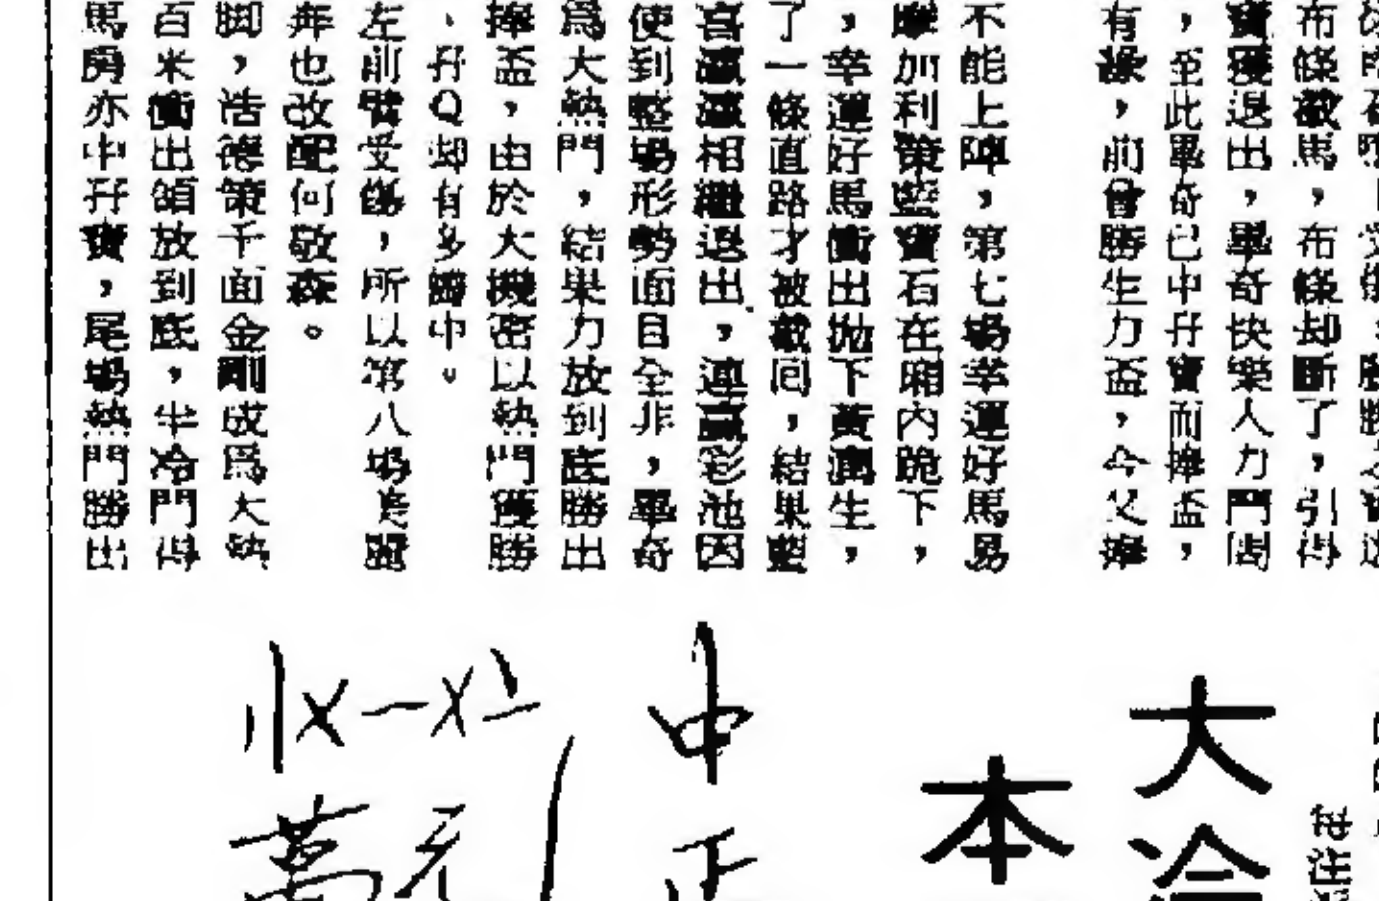 布條截馬，布條却斷了，引得
寶獲退出，畢奇快樂人力鬥間
，至此畢奇已中孖寶而捧盃，
有緣，前曾勝生力盃，今又捧
不能上陣，第七場幸運好馬易
加利策藍寶石在閘內跪下，
，幸運好馬衝出拋下黃潤生，
了一條直路才被截回，結果藍
喜瀛瀛相繼退出，連贏彩池因
使到整場形勢面目全非，畢奇
爲大熱門，結果力放到底勝出
捧盃，由於大機密以熱門獲勝
，孖Q却有多少中。
左前臂受傷，所以第八場
奔也改配何敬森。
脚，告德策千面金剛成爲大熱
百米衝出領放到底，半冷門得
馬房亦中孖寶，尾場熱門勝出
每注
大冷
本
中正
〡〤一〤〦
萬元